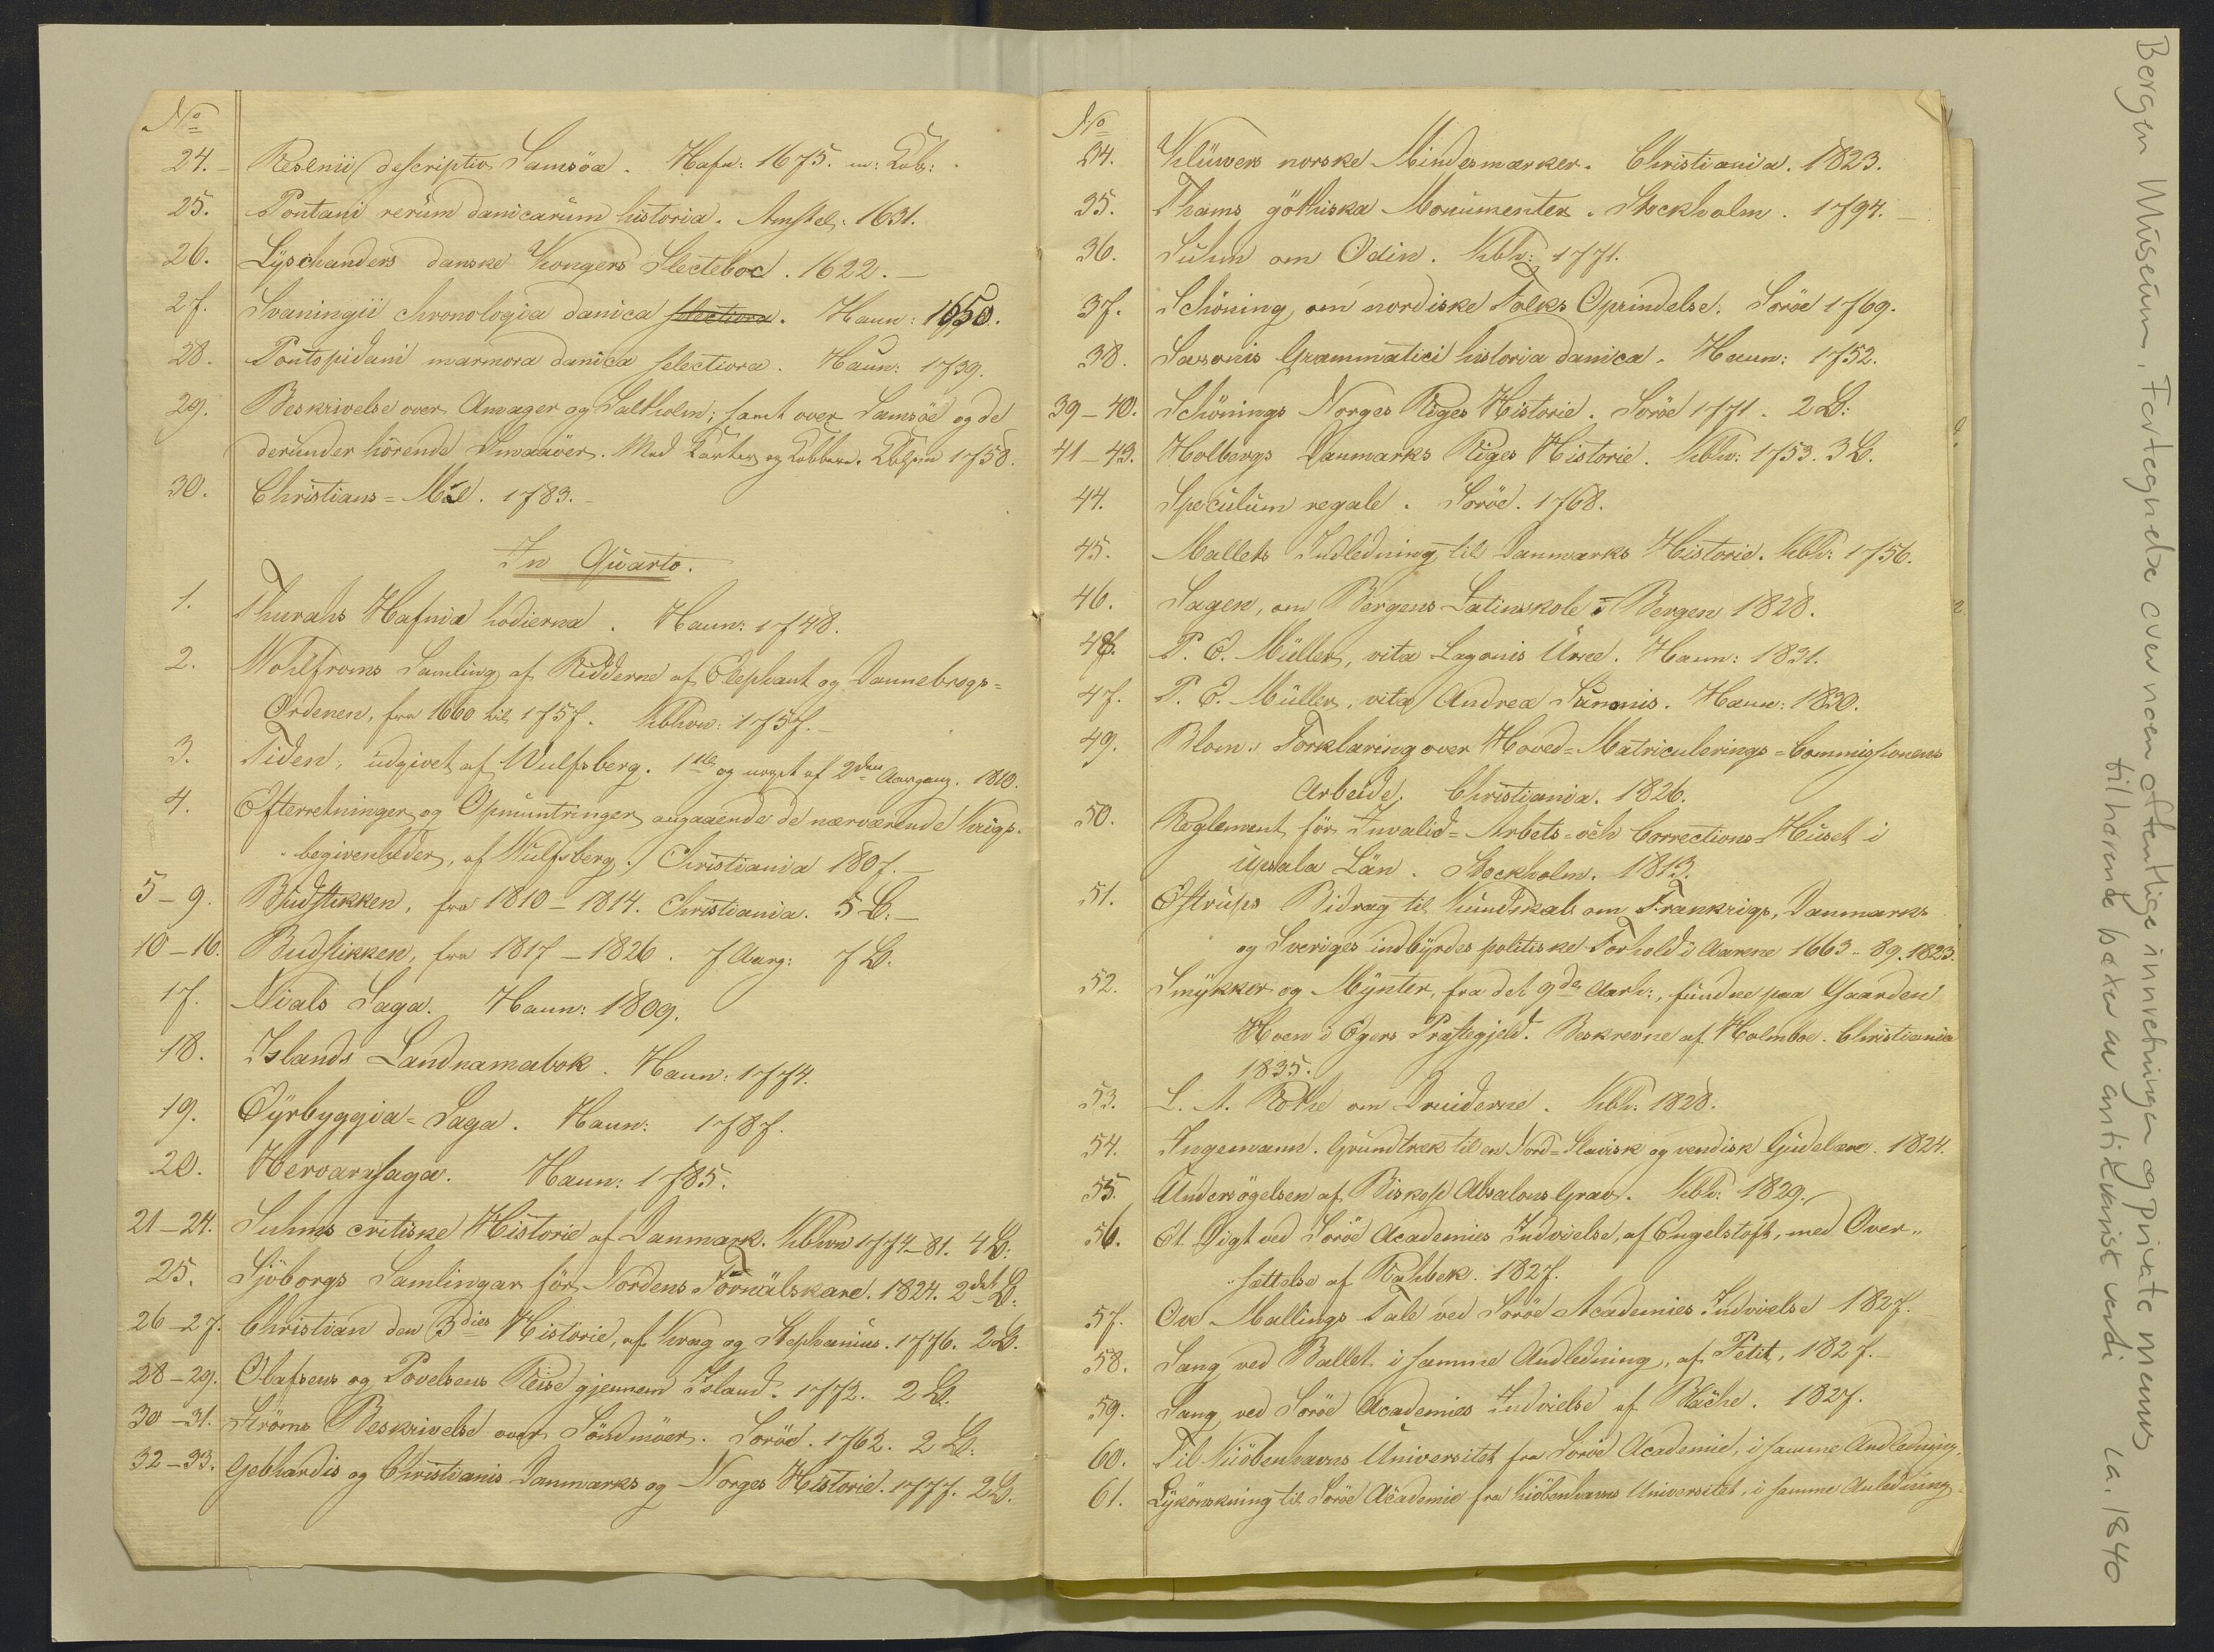 No
24. Resenii descriptio Samsöa. Hafn: 1675. m: Kob:
25. Pontani rerum danicarum historia. Amstel: 1631.
26. Lyschanders danske Kongers Slecteboc. 1622. —
27. Svaningii chronologia danica selectiora. Haun: 1650.
28. Pontopidani marmora danica selectiora. Haun: 1739.
29. Beskrivelse over Amager og Saltholm; samt over Samsöe og de
derunder hörende Smaaöer. Med Karter og Kobbere. Kbhvn 1758.
30. Christians-Mil. 1783. —
In Quarto.
1. Thurahs Hafnia hodierna. Haun: 1748.
2. Wohlfroms Samling af Ridderne af Elephant og Dannebrogs-
Ordenen, fra 1660 til 1757. Kbhvn: 1757. —
3. Tiden, udgivet af Wulfsberg. 1ste og noget af 2den Aargang. 1810.
4. Efterretninger og Opmuntringer angaaende de nærværende Krigs-
begivenheder, af Wulfsberg. Christiania 1807. —
5–9. Budstikken, fra 1810–1814. Christiania. 5 B. —
10–16. Budstikken, fra 1817–1826. 7 Aarg: 7 B.
17. Nials Saga. Haun: 1809.
18. Islands Landnamabok. Haun: 1774.
19. Eyrbyggia-Saga. Haun: 1787.
20. Hervararsaga. Haun: 1785.
21–24. Suhms critiske Historie af Danmark. Kbhvn 1774–81. 4 B:
25. Sjöborgs Samlingar för Nordens Fornälskare. 1824. 2det B:
26–27. Christian den 3dies Historie, af Krag og Stephanius. 1776. 2 B.
28–29. Olafsens og Povelsens Reise gjennem Island. 1772. 2 B.
30–31. Ströms Beskrivelse over Söndmöer. Soröe. 1762. 2 B:
32–33. Gebhardis og Christianis Danmarks og Norges Historie. 1777. 2 B.
No
34. Klüwers norske Mindesmærker. Christiania. 1823.
35. Thams göthiska Monumenter. Stockholm. 1794. —
36. Suhm om Odin. Kbh: 1771.
37. Schöning, om nordiske Folks Oprindelse. Soröe 1769.
38. Saxonis Grammatici historia danica. Haun: 1752.
39–40. Schönings Norges Riges Historie. Soröe 1771. 2 B:
41–43. Holbergs Danmarks Riges Historie. Kbhv: 1753. 3 B.
44. Speculum regale. Soröe. 1768.
45. Mallets Indledning til Danmarks Historie. Kbh: 1756.
46. Sagen, om Bergens Latinskole. Bergen 1828.
48. P. E. Müller, vita Lagonis Urne. Haun: 1831.
47. P. E. Müller, vita Andreæ Sunonis. Haun: 1830.
49. Blom: Forklaring over Hoved-Matriculerings-Commissionens
Arbeide. Christiania. 1826.
50. Reglement för Invalid-Arbets-och Corrections-Huset i
Upsala Län. Stockholm. 1813.
51. Estrups Bidrag til Kundskab om Frankrigs, Danmarks
og Sveriges indbyrdes politiske Forhold i Aarene 1663–89. 1823.
52. Smykker og Mynter, fra det 9de Aarh:, fundne paa Gaarden
Hoen i Egers Præstegjeld. Beskrevne af Holmboe. Christiania
1835.
53. L. A. Rothe om Druiderne. Kbh: 1828.
54. Ingemann. Grundtræk til en Nord-Slavisk og vendisk Gudelære. 1824.
55. Undersögelsen af Biskop Absalons Grav. Kbh: 1829.
56. Et Digt ved Soröe Academies Indvielse, af Engelstoft, med Over-
sættelse af Rahbek. 1827.
57. Ove Mallings Tale ved Soröe Academies Indvielse 1827.
58. Sang ved Ballet i samme Andledning, af Petit, 1827. —
59. Sang ved Soröe Academies Indvielse af Bäche. 1827.
60. Til Kiöbenhavns Universitet fra Soröe Academie, i samme Andledning.
61. Lykönskning til Soröe Academie fra Kiöbenhavns Universitet, i samme Anledning.
Bergen Museum, Fortegnelse over noen offentlige innretninger og private menns
tilhørende bøker av antikvarisk verdi ca. 1840